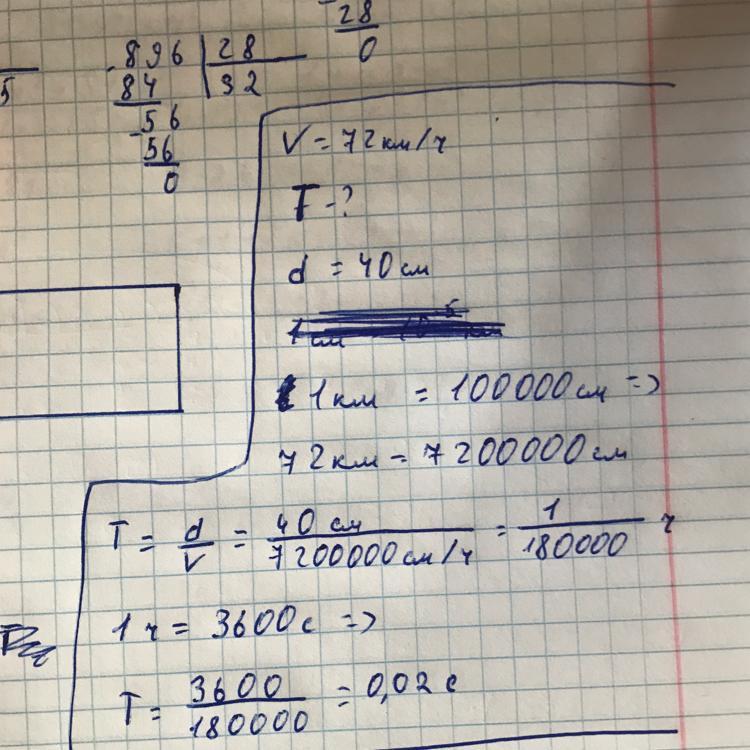 28
0
5
896 | 28
84 | 32
56
56
0
V = 72 км/ч
T - ?
d = 40 см
1 см
1 км = 100000 см =>
72 км = 7200000 см
T = d/V = 40 см / 7200000 см/ч = 1/180000 ч
1 ч = 3600 с =>
T = 3600/180000 = 0,02 с